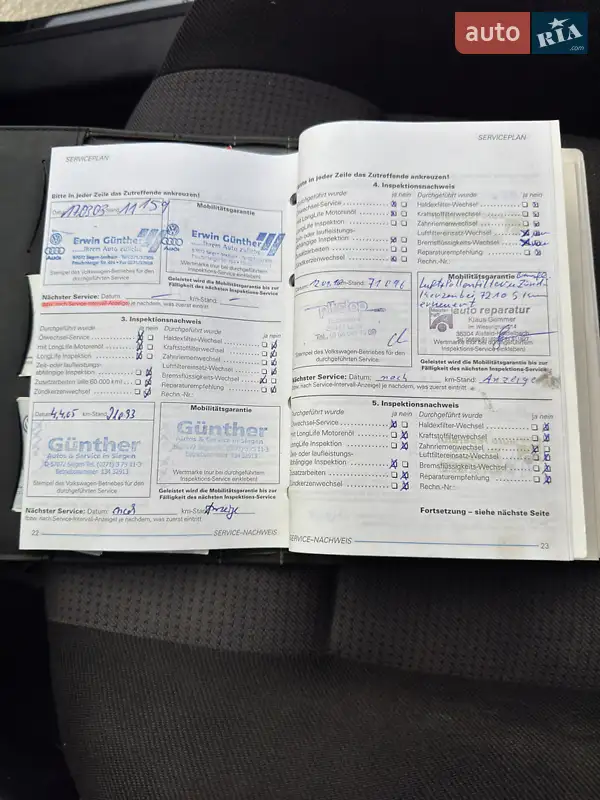 auto RIA .com
SERVICEPLAN
Bitte in jeder Zeile das Zutreffende ankreuzen!
Mobilitätsgarantie
Erwin Günther
Ihrem Auto zuliebe
Audi
Erwin Günther
Ihrem Auto zuliebe
Audi
Stempel des Volkswagen-Betriebes für den
durchgeführten Service
Wertmarke (nur bei durchgeführtem
Inspektions-Service einkleben)
Geleistet wird die Mobilitätsgarantie bis zur
Fälligkeit des nächsten Inspektions-Service
Nächster Service: Datum km-Stand:
(bzw. nach Service-Intervall-Anzeige) je nachdem, was zuerst eintritt
3. Inspektionsnachweis
Durchgeführt wurde ja nein
Ölwechsel-Service
mit LongLife Motorenöl
LongLife Inspektion
Zeit- oder laufleistungs-
abhängige Inspektion
Zusatzarbeiten (alle 60.000 km)
Zündkerzenwechsel
Durchgeführt wurde ja nein
Haldexfilter-Wechsel
Kraftstofffilterwechsel
Zahnriemenwechsel
Luftfiltereinsatz-Wechsel
Bremsflüssigkeits-Wechsel
Reparaturempfehlung
Rechn.-Nr.:
Datum 4.4.05 km-Stand
Günther
Autos & Service in Siegen
Stempel des Volkswagen-Betriebes für den
durchgeführten Service
Mobilitätsgarantie
Günther
Autos & Service in Siegen
Wertmarke (nur bei durchgeführtem
Inspektions-Service einkleben)
Geleistet wird die Mobilitätsgarantie bis zur
Fälligkeit des nächsten Inspektions-Service
Nächster Service: Datum: nach km-Stand: Anzeige
(bzw. nach Service-Intervall-Anzeige) je nachdem, was zuerst eintritt
22 SERVICE-NACHWEIS
SERVICEPLAN
Bitte in jeder Zeile das Zutreffende ankreuzen!
4. Inspektionsnachweis
Durchgeführt wurde ja nein
Ölwechsel-Service
mit LongLife Motorenöl
LongLife Inspektion
Zeit- oder laufleistungs-
abhängige Inspektion
Zusatzarbeiten
Zündkerzenwechsel
Durchgeführt wurde ja nein
Haldexfilter-Wechsel
Kraftstofffilterwechsel
Zahnriemenwechsel
Luftfiltereinsatz-Wechsel
Bremsflüssigkeits-Wechsel
Reparaturempfehlung
Rechn.-Nr.:
71096
Stempel des Volkswagen-Betriebes für den
durchgeführten Service
Mobilitätsgarantie
auto reparatur
Klaus Gemmer
36304 Alsfeld
Wertmarke (nur bei durchgeführtem
Inspektions-Service einkleben)
Geleistet wird die Mobilitätsgarantie bis zur
Fälligkeit des nächsten Inspektions-Service
Nächster Service: Datum: nach km-Stand: Anzeige
(bzw. nach Service-Intervall-Anzeige) je nachdem, was zuerst eintritt
5. Inspektionsnachweis
Durchgeführt wurde ja nein
Ölwechsel-Service
mit LongLife Motorenöl
LongLife Inspektion
Zeit- oder laufleistungs-
abhängige Inspektion
Zusatzarbeiten
Zündkerzenwechsel
Durchgeführt wurde ja nein
Haldexfilter-Wechsel
Kraftstofffilterwechsel
Zahnriemenwechsel
Luftfiltereinsatz-Wechsel
Bremsflüssigkeits-Wechsel
Reparaturempfehlung
Rechn.-Nr.:
Fortsetzung – siehe nächste Seite
SERVICE-NACHWEIS 23